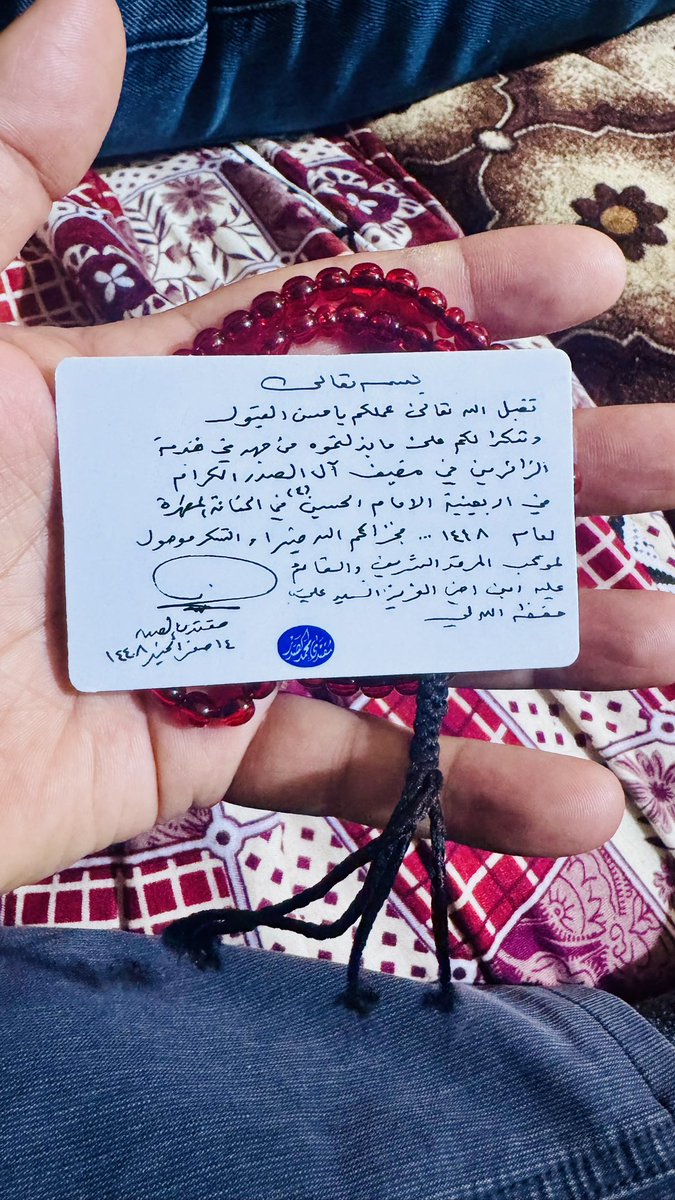 بسمه تعالى
تقبل الله تعالى عملكم باحسن القبول
وشكرا لكم على ما بذلتموه من جهد في خدمة
الزائرين في مضيف آل الصدر الكرام
في اربعينية الامام الحسين (ع) في الحنانة المطهرة
لعام ١٤٤٨ ... فجزاكم الله خيرا والشكر موصول
لموكب المرقد الشريف والقائم
عليه ابن اخي العزيز السيد علي
حفظه الله لي
مقتدى الصدر
١٤ صفر الخير ١٤٤٨
مقتدى محمد الصدر